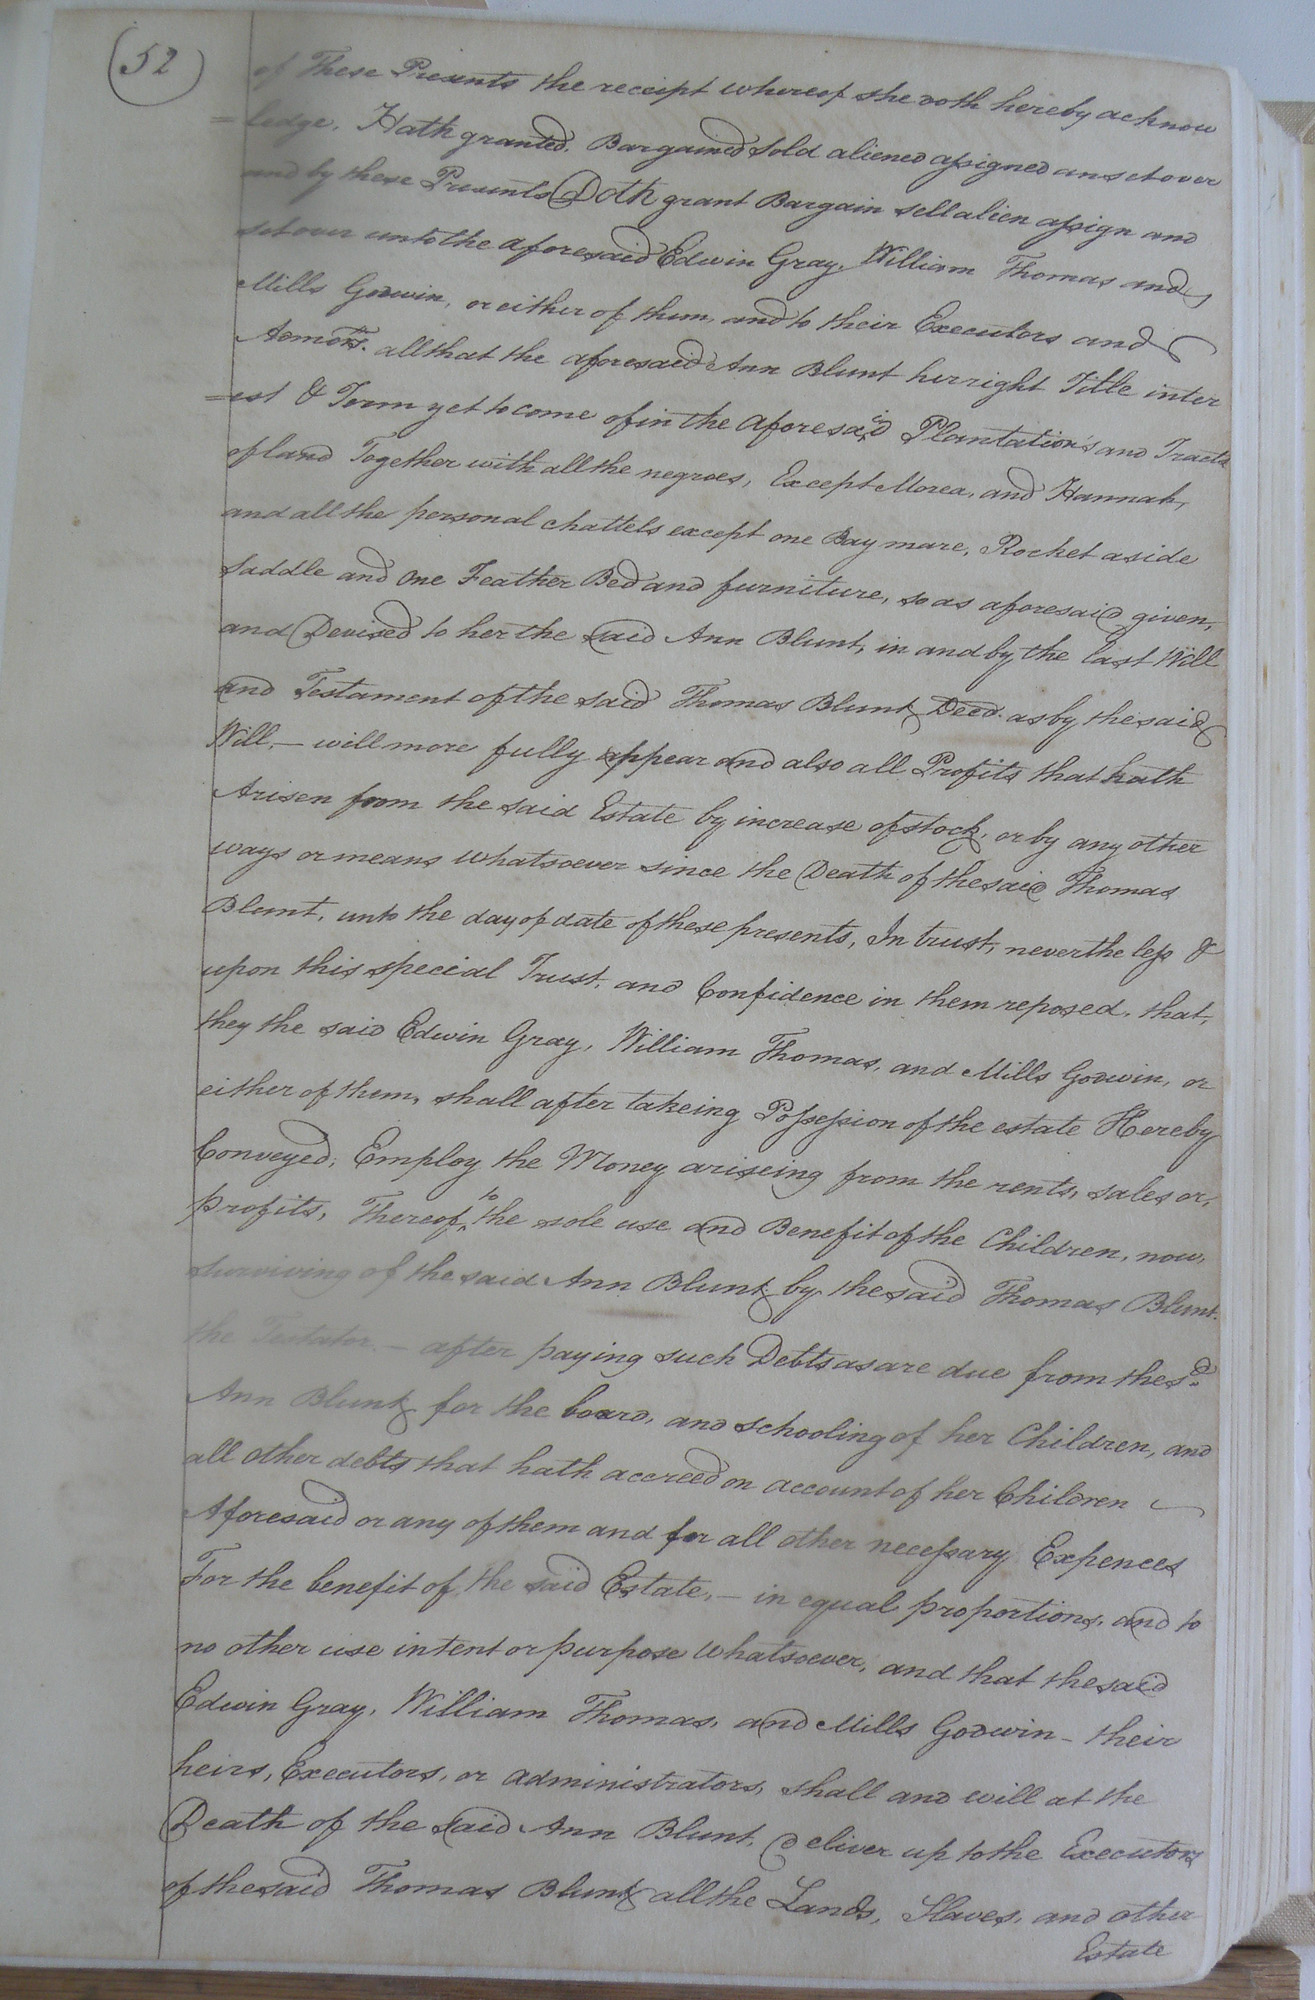 (52)
of These Presents the receipt whereof she doth hereby acknow
=ledge, Hath granted, Bargained Sold aliened assigned an set over
and by these Presents Doth grant Bargain sell alien assign and
set over unto the aforesaid Edwin Gray, William Thomas and
Mills Godwin, or either of them, and to their Executors and
Admors. all that the aforesaid Ann Blunt her right Title inter
=est & Term yet to come of in the aforesaid Plantation's and Tracts
of land Together with all the negroes, Except Morea, and Hannah,
and all the personal chattels except one Bay mare, Rocket a side
Saddle and one Feather Bed and furniture, so as aforesaid given,
and Devised to her the said Ann Blunt, in and by the last Will
and Testament of the said Thomas Blunt Deed. as by the said
Will, — will more fully appear and also all Profits that hath
Arisen from the said Estate by increase of stock, or by any other
ways or means whatsoever since the Death of the said Thomas
Blunt, unto the day of date of these presents, In trust, never the less &
upon this special Trust, and Confidence in them reposed, that,
they the said Edwin Gray, William Thomas, and Mills Godwin, or
either of them, shall after takeing Possession of the estate Hereby
Conveyed, Employ the Money ariseing from the rents, sales or,
profits, Thereof, to the sole use and Benefit of the Children, now,
surviving of the said Ann Blunt by the said Thomas Blunt.
the Testator. — after paying such Debts as are due from the sd.
Ann Blunt for the board, and schooling of her Children, and
all other debts that hath accreed on account of her Children
Aforesaid or any of them and for all other necessary Expences
For the benefit of the said Estate, — in equal proportions, and to
no other use intent or purpose whatsoever, and that the said
Edwin Gray, William Thomas, and Mills Godwin - their
heirs, Executors, or administrators, shall and will at the
Death of the said Ann Blunt, deliver up to the Executors
of the said Thomas Blunt all the Lands, Slaves, and other
Estate